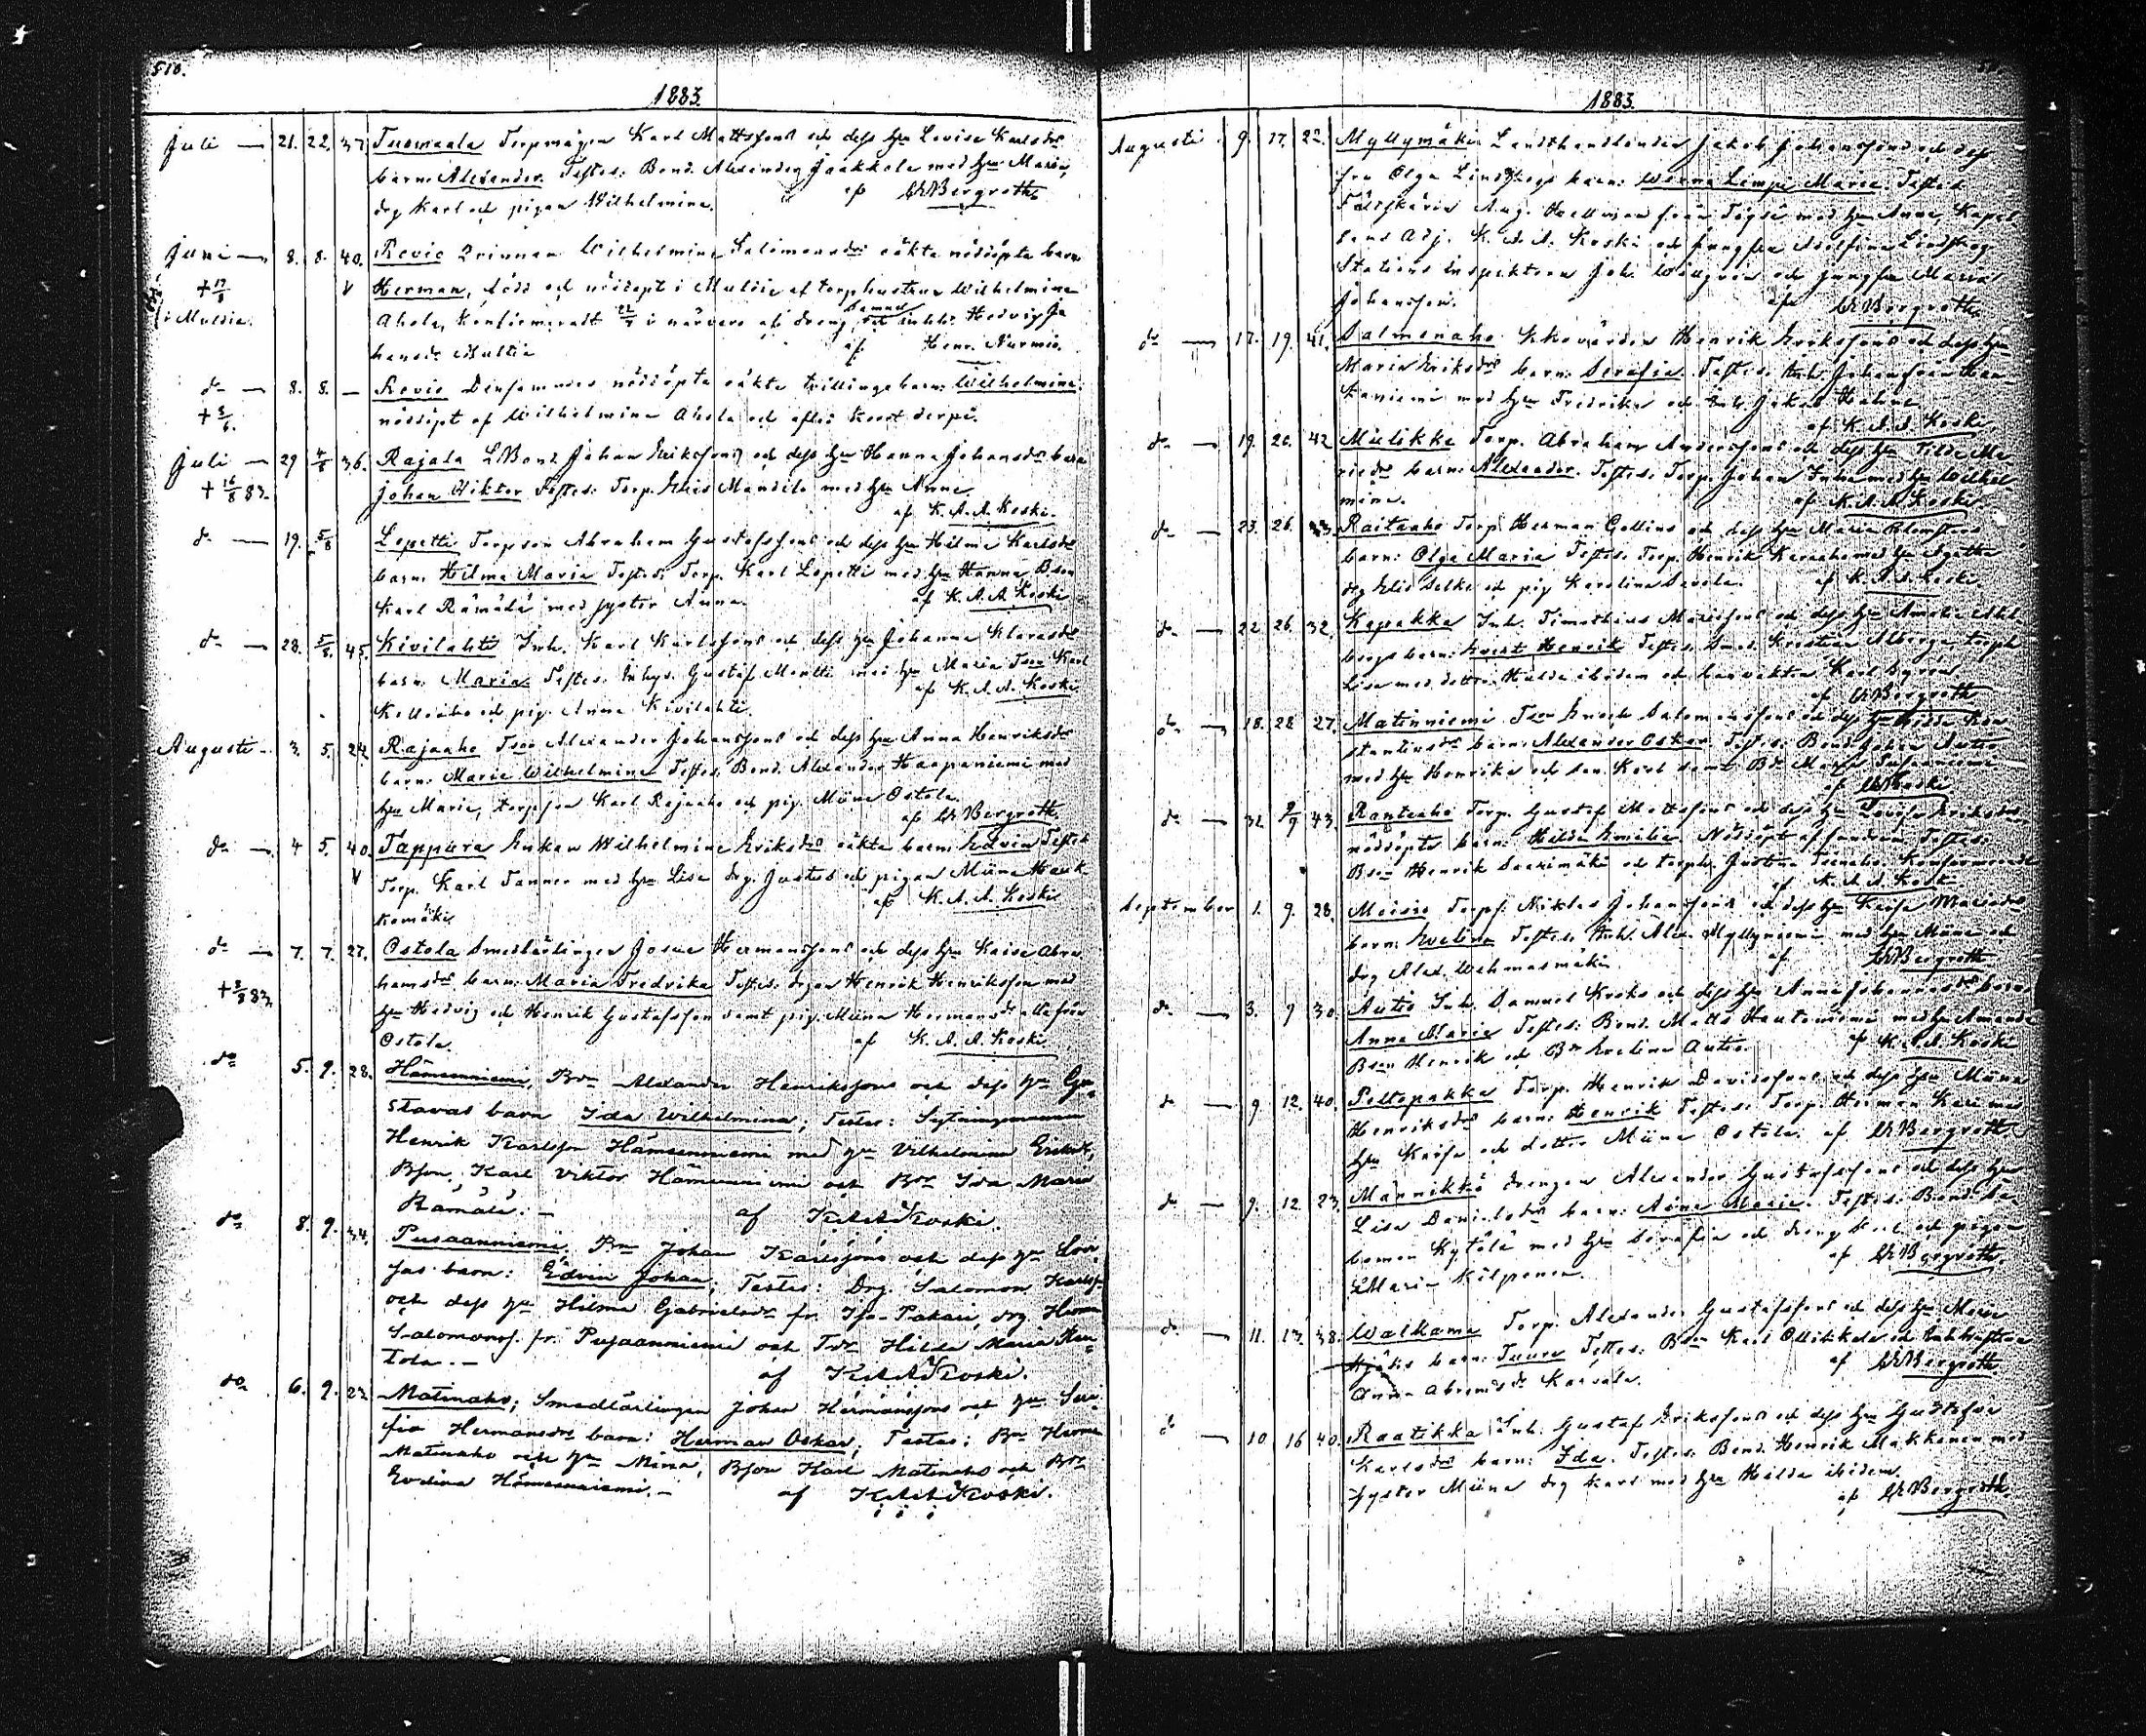 510.
1883.
Juli — 21. 22. 37 Tuomaala Torpmågen Karl Mattsons och dess hu Lovisa Karlsdr
barn: Alexander. Testes: Bond. Alexander Jaakkola med hu Maria,
drg Karl och pigan Wilhelmina. af Bergroth
Juni — 8. 8. 40. Rovio Qvinnan Wilhelmina Salomonsdr oäkta nöddöpta barn
Herman, född och nöddöpt i Multia af torphustrun Wilhelmina
i Multia. Ahola, Konfirmeradt i närvaro af dreng Hedvig Jo
hansdr Multia af Henr. Nurmio.
do — 8. 8. — Rovio Densammas nöddöpta oäkta tvillingebarn: Wilhelmina
nöddöpt af Wilhelmina Ahola och afled kort derpå.
Juli — 29 4/8 36. Rajala LBond Johan Eriksons och dess hu Hanna Johansdr barn
+ 16/8 83. Johan Viktor Testes: Torp. Elis Mansila med hu Anna.
af K. A. A. Koski.
do — 19. 5/8 Lopetti Torpson Abraham Gustafssons och dess hu Hilma Karlsdr
barn: Hilma Maria Testes: Torp. Karl Lopetti med hu Hanna, Bson
Karl Rämälä med syster Anna. af K. A. A. Koski
do — 28. 5/8 45. Kivilahti Inh. Karl Karlssons och dess hu Johanna Klarasdr
barn: Maria Testes: Inhys. Gustaf Mantti med hu Maria Tson Karl
och pig. Anna Kivilahti. af K. A. A. Koski.
Augusti — 3. 5. 24 Rajaaho Tson Alexander Johanssons och dess hu Anna Henriksdr
barn: Maria Wilhelmina Testes: Bond. Alexander Haapaniemi med
hu Maria, torpson Karl Rajaaho och pig. Miina Ostola.
af Bergroth
do — 4 5. 40. Tappura Enkan Wilhelmina Eriksdrs oäkta barn: Edvin Testes
Torp. Karl Tanner med hu Lisa drg. Justus och pigan Miina Hauk
komäki af K. A. A. Koski
do — 7. 7. 27. Ostola Smedlärlingen Josua Hermanssons och dess hu Kaisa Abra
hamsdrs barn: Maria Fredrika Testes: drgen Henrik Henriksson med
hu Hedvig och Henrik Gustafsson samt pig. Miina Hermansdr alla från
Ostola. af K. A. A. Koski
do 5. 9. 28. Hämeenniemi, Bdn Alexander Henrikssons och dess hu Gu-
stavas barn Ida Wilhelmina; Testes: Sytningsmannen
Henrik Karlsson Hämeenniemi med hu Vilhelmina Eriksdr,
Bson Karl Viktor Hämeenniemi och Bdr Ida Maria
Rämälä. — af K A A Koski.
do 8. 9. 34. Pusaanniemi. Bn Johan Karlssons och dess hu Lovi-
sas barn: Edvin Johan; Testes: Drg. Salomon Karlss.
och dess hu Hilma Gabrielsdr fr. Iso-Pakari, drg Herm
Salomonss. fr. Pusaanniemi och Tdr Hilda Maria Rau-
tola. — af K A A Koski.
do 6. 9. 23 Matinaho; Smedlärlingen Johan Hermanssons och hu Se-
fia Hermansdrs barn: Herman Oskar; Testes: Bn Herman
Matinaho och hu Miina, Bson Karl Matinaho och Bdr
Evelina Hämeenniemi. — af K A A Koski.
1883.
Augusti 9. 17. 22. Myllymäki Landthandlanden Jakob Johanssons och dess
fru Olga Lindskogs barn: Werna Limpi Maria. Testes
Fältskären Aug. Hellman från Töysä med hu Anna, Kapel
lans Adj. K. A. A. Koski och jungfru Adolfina Lindskog
Stations Inspektoren Joh. och jungfru Maria
Johansson. af Bergroth
do — 17. 19. 41. Salmenaho Kyrkovärden Henrik Erikssons och dess hu
Maria Eriksdrs barn: Serafia. Testes: Inh. Johan från Haa-
paniemi med hu Fredrika och Inh. Jakob
af K. A. A. Koski
do — 19. 20. 42 Mulikka Torp. Abraham Anderssons och dess hu Hilda Ma-
riedr barn: Alexander. Testes: Torp. Johan med hu Wilhel-
mina. af K. A. A. Koski.
do — 23. 26. 33. Raitaaho Torp. Herman Gallins och dess hu Maria
barn: Olga Maria Testes: Torp. Henrik med hu Agatha
drg Elis och pig Karolina Savola. af K. A. A. Koski
do — 22. 26. 32. Kapakka Inh. Timotheus Mariassons och dess hu Amalia Ahl-
bergs barn: Evert Henrik Testes: Smed. Kristian Alberga torph
Lisa med dotter Hulda ibidem och banvakten Karl Byren.
af Bergroth
do — 18. 28 27. Matinniemi Tson Enoch Salomonssons och dess hu Hilda Kon
stantinsdr barn: Alexander Oskar. Testes: Bond. Johan Autio
med hu Henrika och son Karl samt Bdr Maria
af Koski
do — 31. 2/9 43. Rantaaho Torp. Gustaf Mattssons och dess hu Lovisa Eriksdrs
nöddöpta barn: Hilda Emalia. Nöddöpt af fundum Testes:
Bson Henrik Saarimäki och torph. Justina Konfirmeradt
af K. A. A. Koski.
September 1. 9. 28. Moisio Torps. Niklas Johanssons och dess hu Kaisa Mariasdr
barn: Evelina Testes: Inh. Alex. Myllyniemi med hu Miina och
drg Alex. Wehmasmäki. af Bergroth
do — 3. 9 30. Autio Inh. Samuel Kroks och dess hu Anna Johannesdrs barn
Anna Maria Testes: Bond. Matts Hautaniemi med hu Amanda
Bson Henrik och Bdr Evelina Autio. af K. A. A. Koski
do — 9. 12. 40. Peltopakka Torp. Henrik Davidssons och dess hu Miina
Henriksdrs barn: Henrik Testes: Torp. Herman Kari med
hu Kaisa och dotter Miina Ostola. af Bergroth.
do — 9. 12. 23. Mannikkö drengen Alexander Gustafssons och dess hu
Lisa Danielsdrs barn: Aina Maria. Testes: Bond. Sa-
lomon Kytölä med hu Serafia och dreng Karl och pigan
Maria Kilponen. af Bergroth.
do — 11. 13. 38. Walkama Torp. Alexander Gustafssons och dess hu Maria
barn: Tuure Testes: Bson Karl Ollikkala och Inh. hustrun
Anna Abramsdr Kaivola. af Bergroth.
do — 10. 16 40. Raatikka Inh. Gustaf Erikssons och dess hu Gustafva
Karlsdrs barn: Ida. Testes: Bond. Henrik Makkonen med
syster Miina drg Karl med hu Hilda ibidem.
af Bergroth.